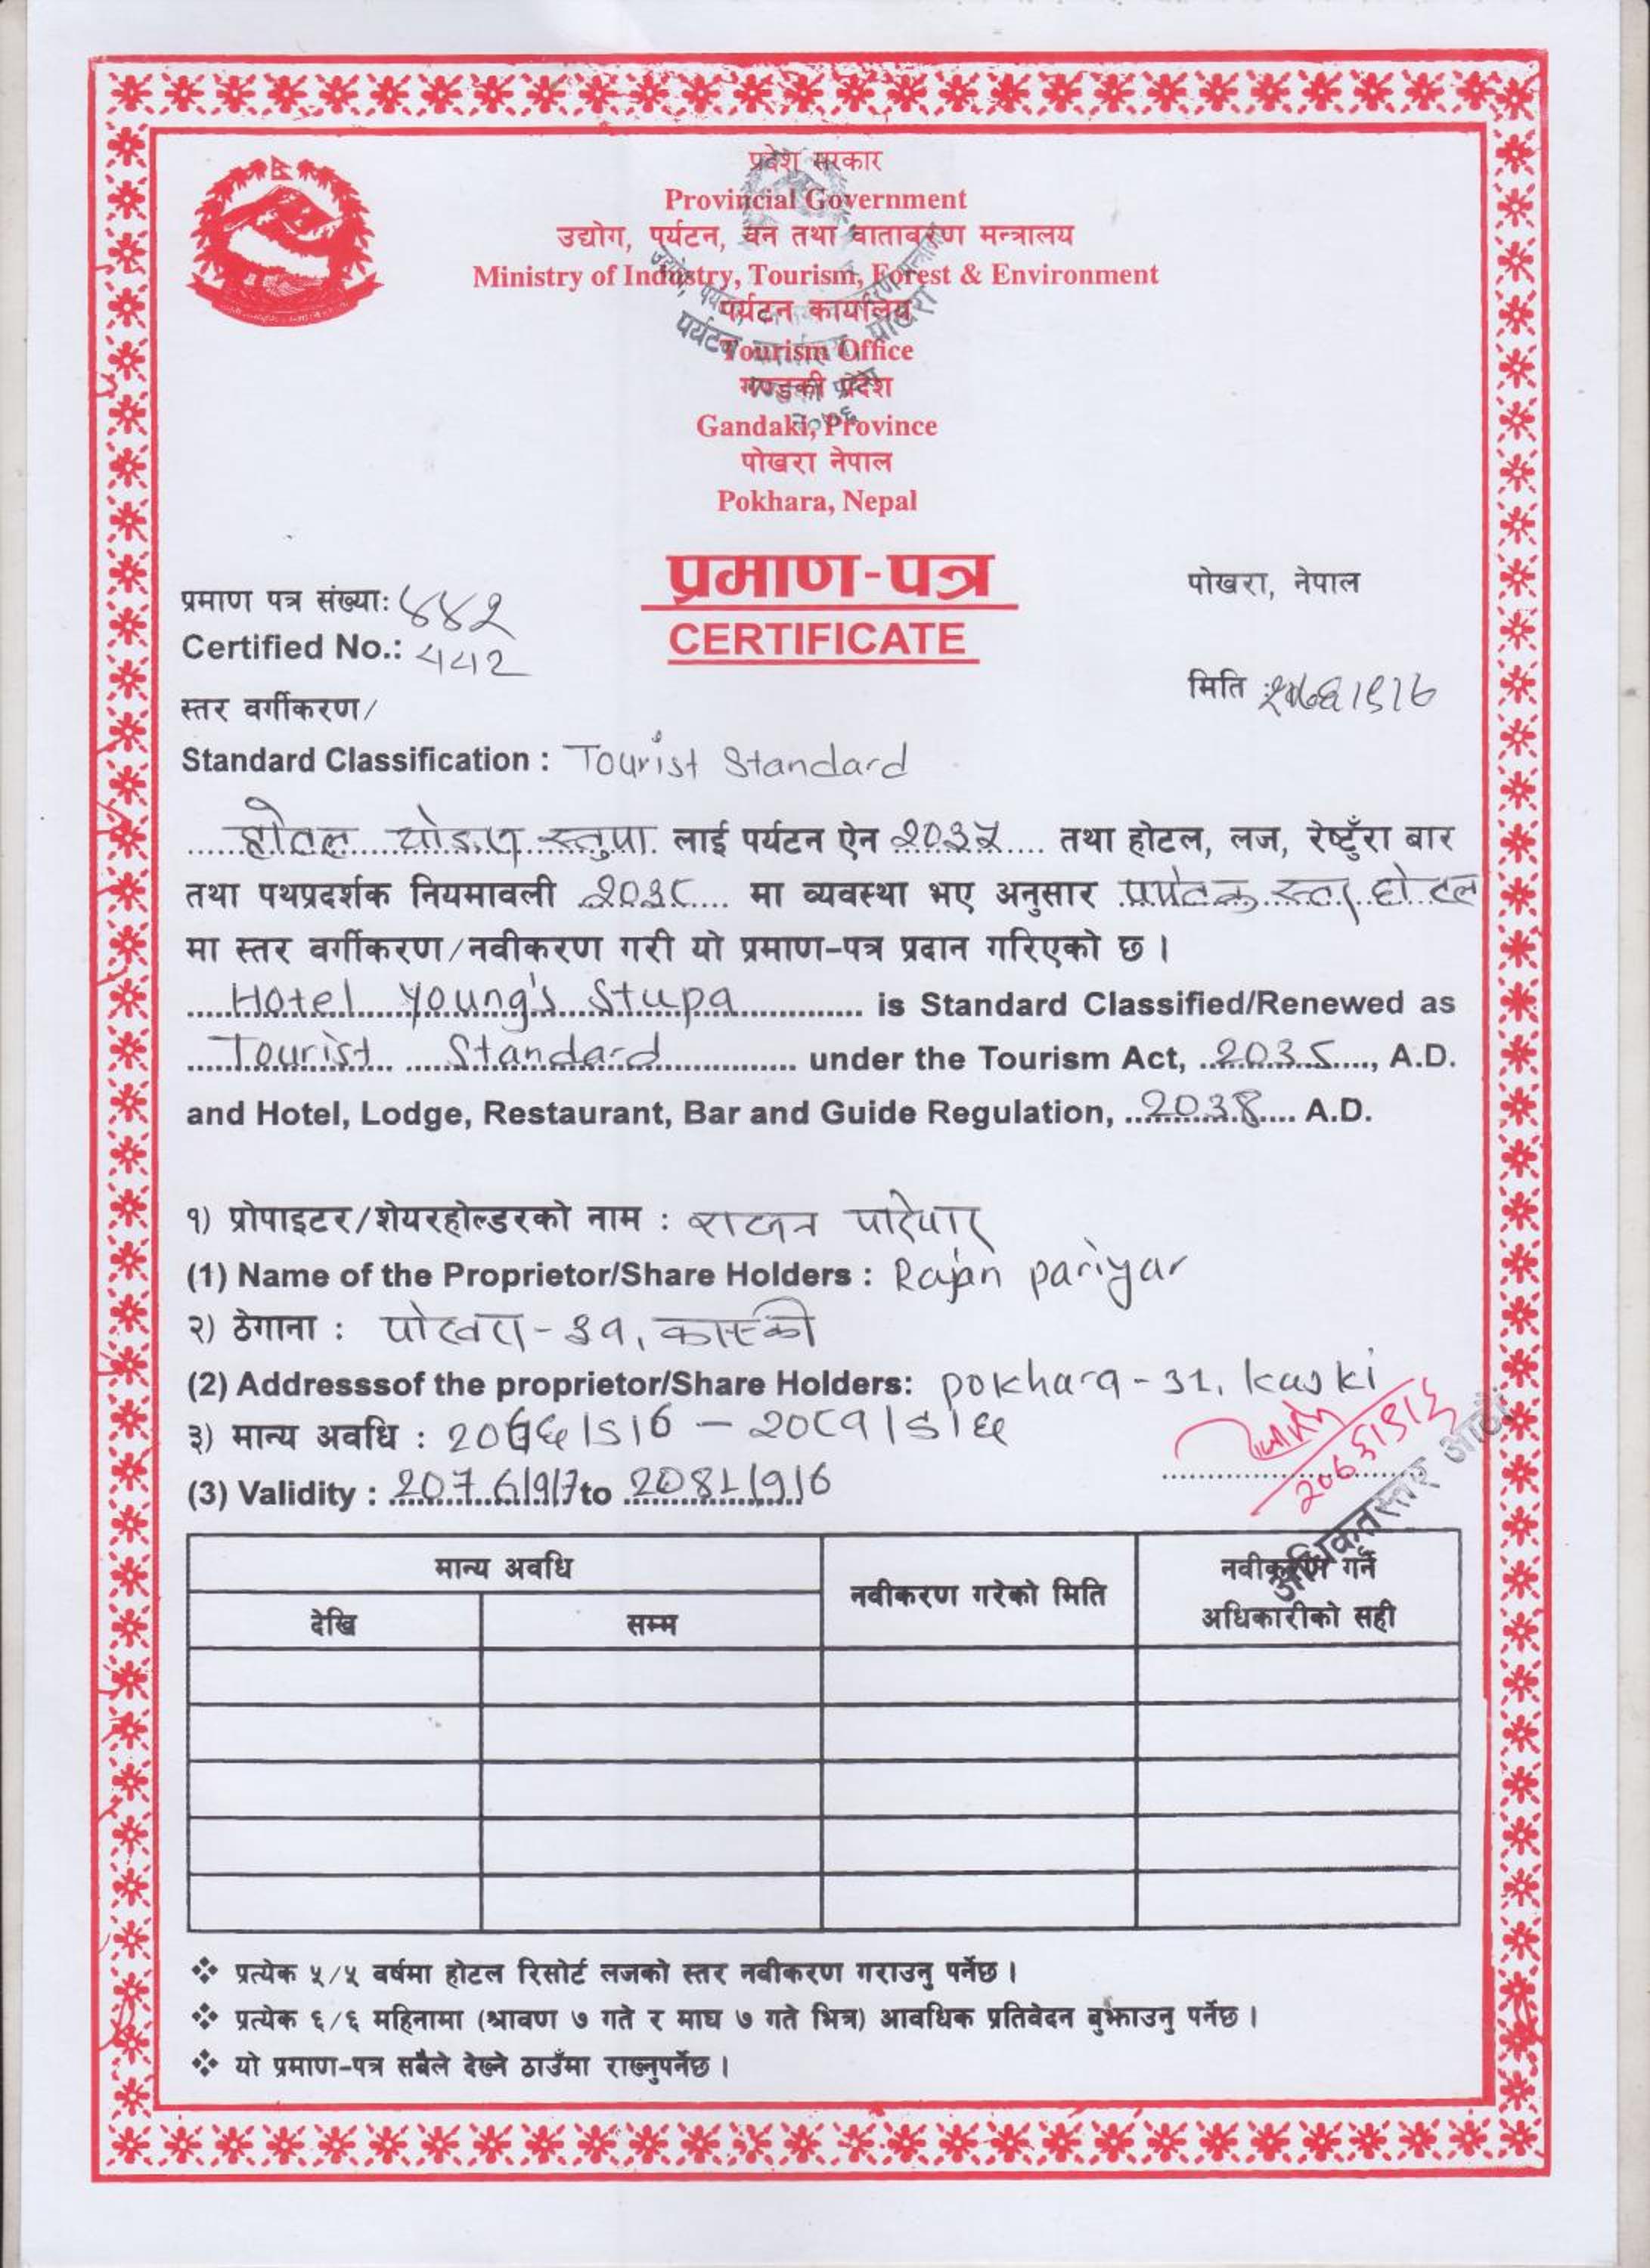 प्रदेश सरकार
Provincial Government
उद्योग, पर्यटन, वन तथा वातावरण मन्त्रालय
Ministry of Industry, Tourism, Forest & Environment
पर्यटन कार्यालय
Tourism Office
गण्डकी प्रदेश
Gandaki, Province
पोखरा नेपाल
Pokhara, Nepal
प्रमाण-पत्र
CERTIFICATE
पोखरा, नेपाल
प्रमाण पत्र संख्या: ४४२
Certified No.: 442
मिति :२०७६/९/७
स्तर वर्गीकरण/
Standard Classification : Tourist Standard
होटल योङस स्तुपा लाई पर्यटन ऐन २०३५ तथा होटल, लज, रेष्टुँरा बार
तथा पथप्रदर्शक नियमावली २०३८ मा व्यवस्था भए अनुसार पर्यटक स्तर होटल
मा स्तर वर्गीकरण/नवीकरण गरी यो प्रमाण-पत्र प्रदान गरिएको छ ।
Hotel Young's Stupa is Standard Classified/Renewed as
Tourist Standard under the Tourism Act, 2035, A.D.
and Hotel, Lodge, Restaurant, Bar and Guide Regulation, 2038 A.D.
१) प्रोपाइटर/शेयरहोल्डरको नाम : राजन परियार
(1) Name of the Proprietor/Share Holders : Rajan pariyar
२) ठेगाना : पोखरा-३१, कास्की
(2) Addresssof the proprietor/Share Holders: pokhara-31, kaski
३) मान्य अवधि : २०७६/९/७ - २०८१/९/६
(3) Validity : 2076/9/7 to 2081/9/6
मान्य अवधि
नवीकरण गरेको मिति
नवीकरण गर्ने
अधिकारीको सही
देखि
सम्म
❖ प्रत्येक ५/५ वर्षमा होटल रिसोर्ट लजको स्तर नवीकरण गराउनु पर्नेछ ।
❖ प्रत्येक ६/६ महिनामा (श्रावण ७ गते र माघ ७ गते भित्र) आवधिक प्रतिवेदन बुझाउनु पर्नेछ ।
❖ यो प्रमाण-पत्र सबैले देख्ने ठाउँमा राख्नुपर्नेछ ।